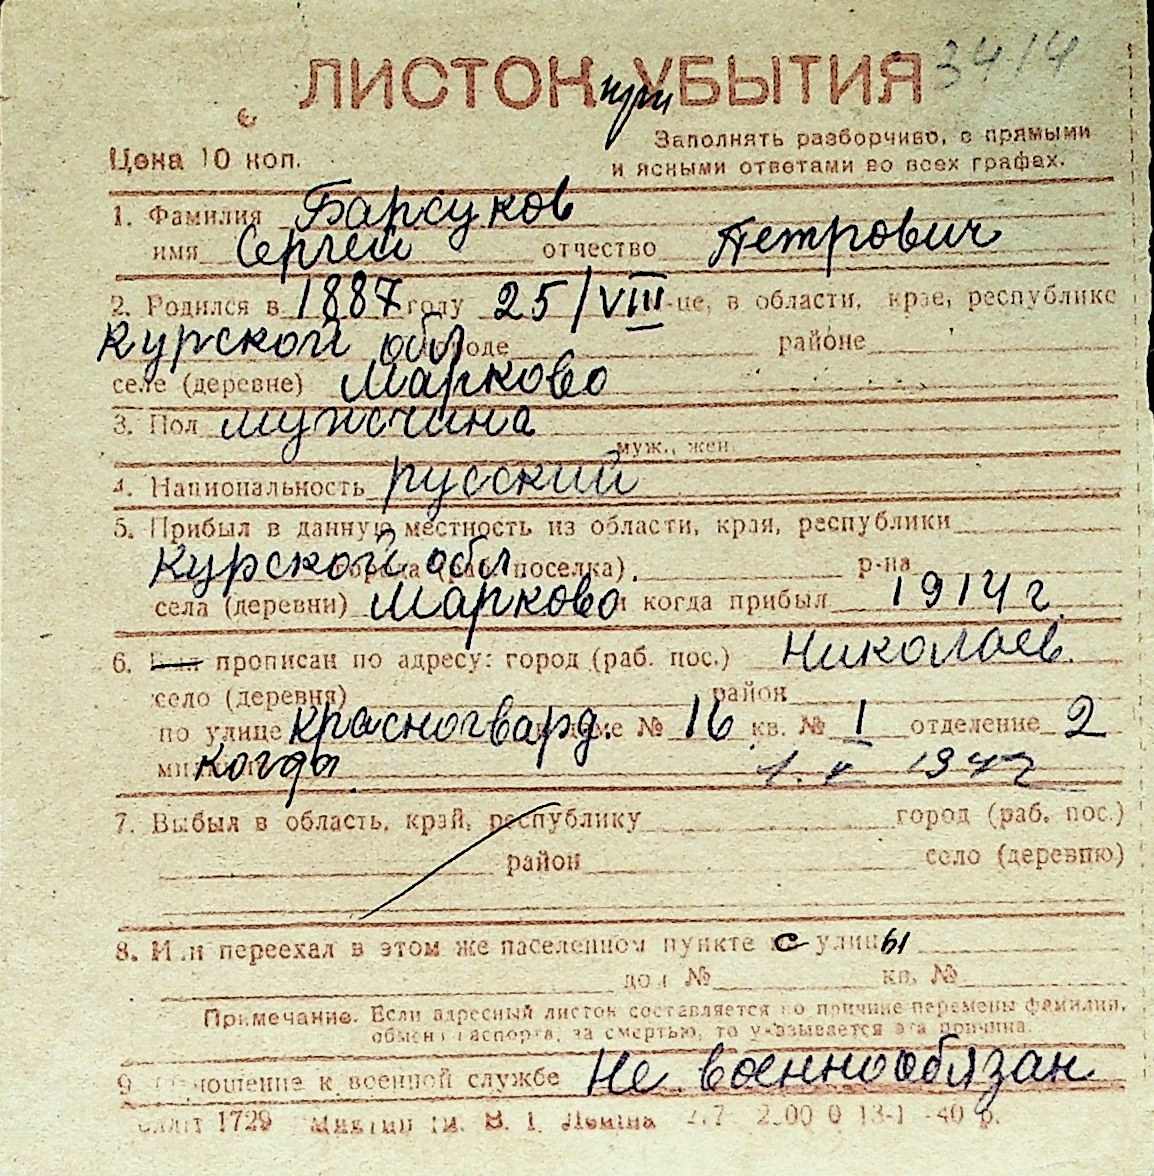 ЛИСТОК при УБЫТИЯ 3414
Цена 10 коп.
Заполнять разборчиво, с прямыми
и ясными ответами во всех графах.
1. Фамилия Барсуков
имя Сергей отчество Петрович
2. Родился в 1887 году 25/VIII м-це, в области, крае, республике
Курской обл городе районе
селе (деревне) Марково
3. Пол мужсчина
муж., жен.
4. Национальность русский
5. Прибыл в данную местность из области, края, республики
Курской обл города (раб. поселка), р-на
села (деревни) Марково и когда прибыл 1914 г
6. Был прописан по адресу: город (раб. пос.) Николаев.
село (деревня) район
по улице красногвард. доме № 16 кв. № 1 отделение 2
когды
7. Выбыл в область, край, республику город (раб. пос.)
район село (деревню)
8. Или переехал в этом же населенном пункте с улицы
дом № кв. №
Примечание. Если адресный листок составляется по причине перемены фамилии,
обмена паспорта, за смертью, то указывается эта причина.
9. Отношение к военной службе Не военнообязан
1729 В. І. Леніна 40 р.